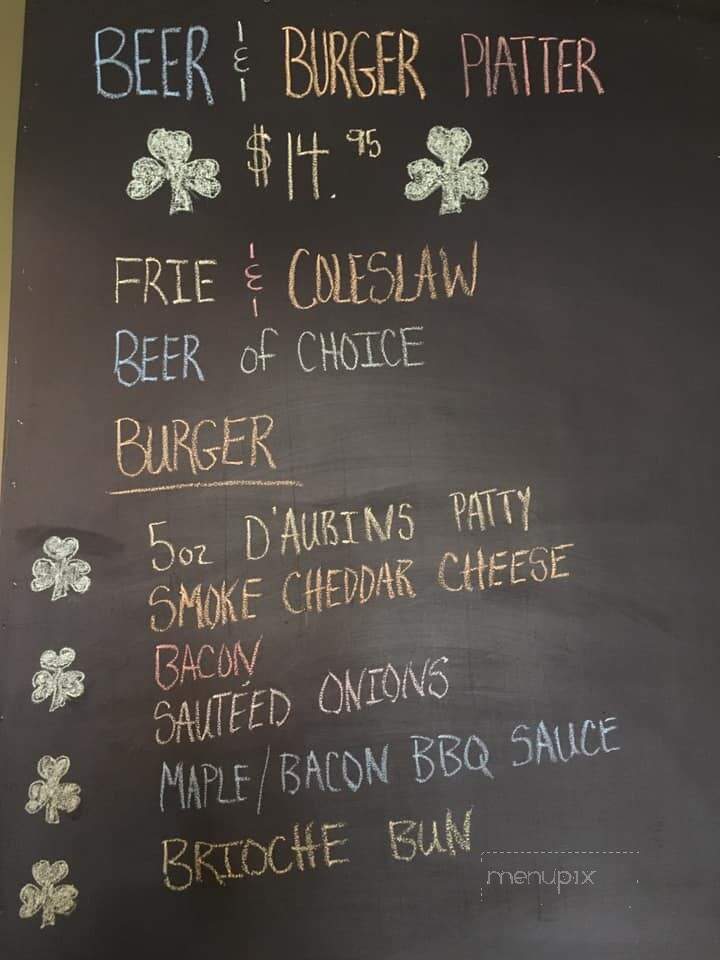 BEER & BURGER PLATTER
$14.95
FRIE & COLESLAW
BEER of CHOICE
BURGER
5oz D'AUBINS PATTY
SMOKE CHEDDAR CHEESE
BACON
SAUTÉED ONIONS
MAPLE/BACON BBQ SAUCE
BRIOCHE BUN
menupix